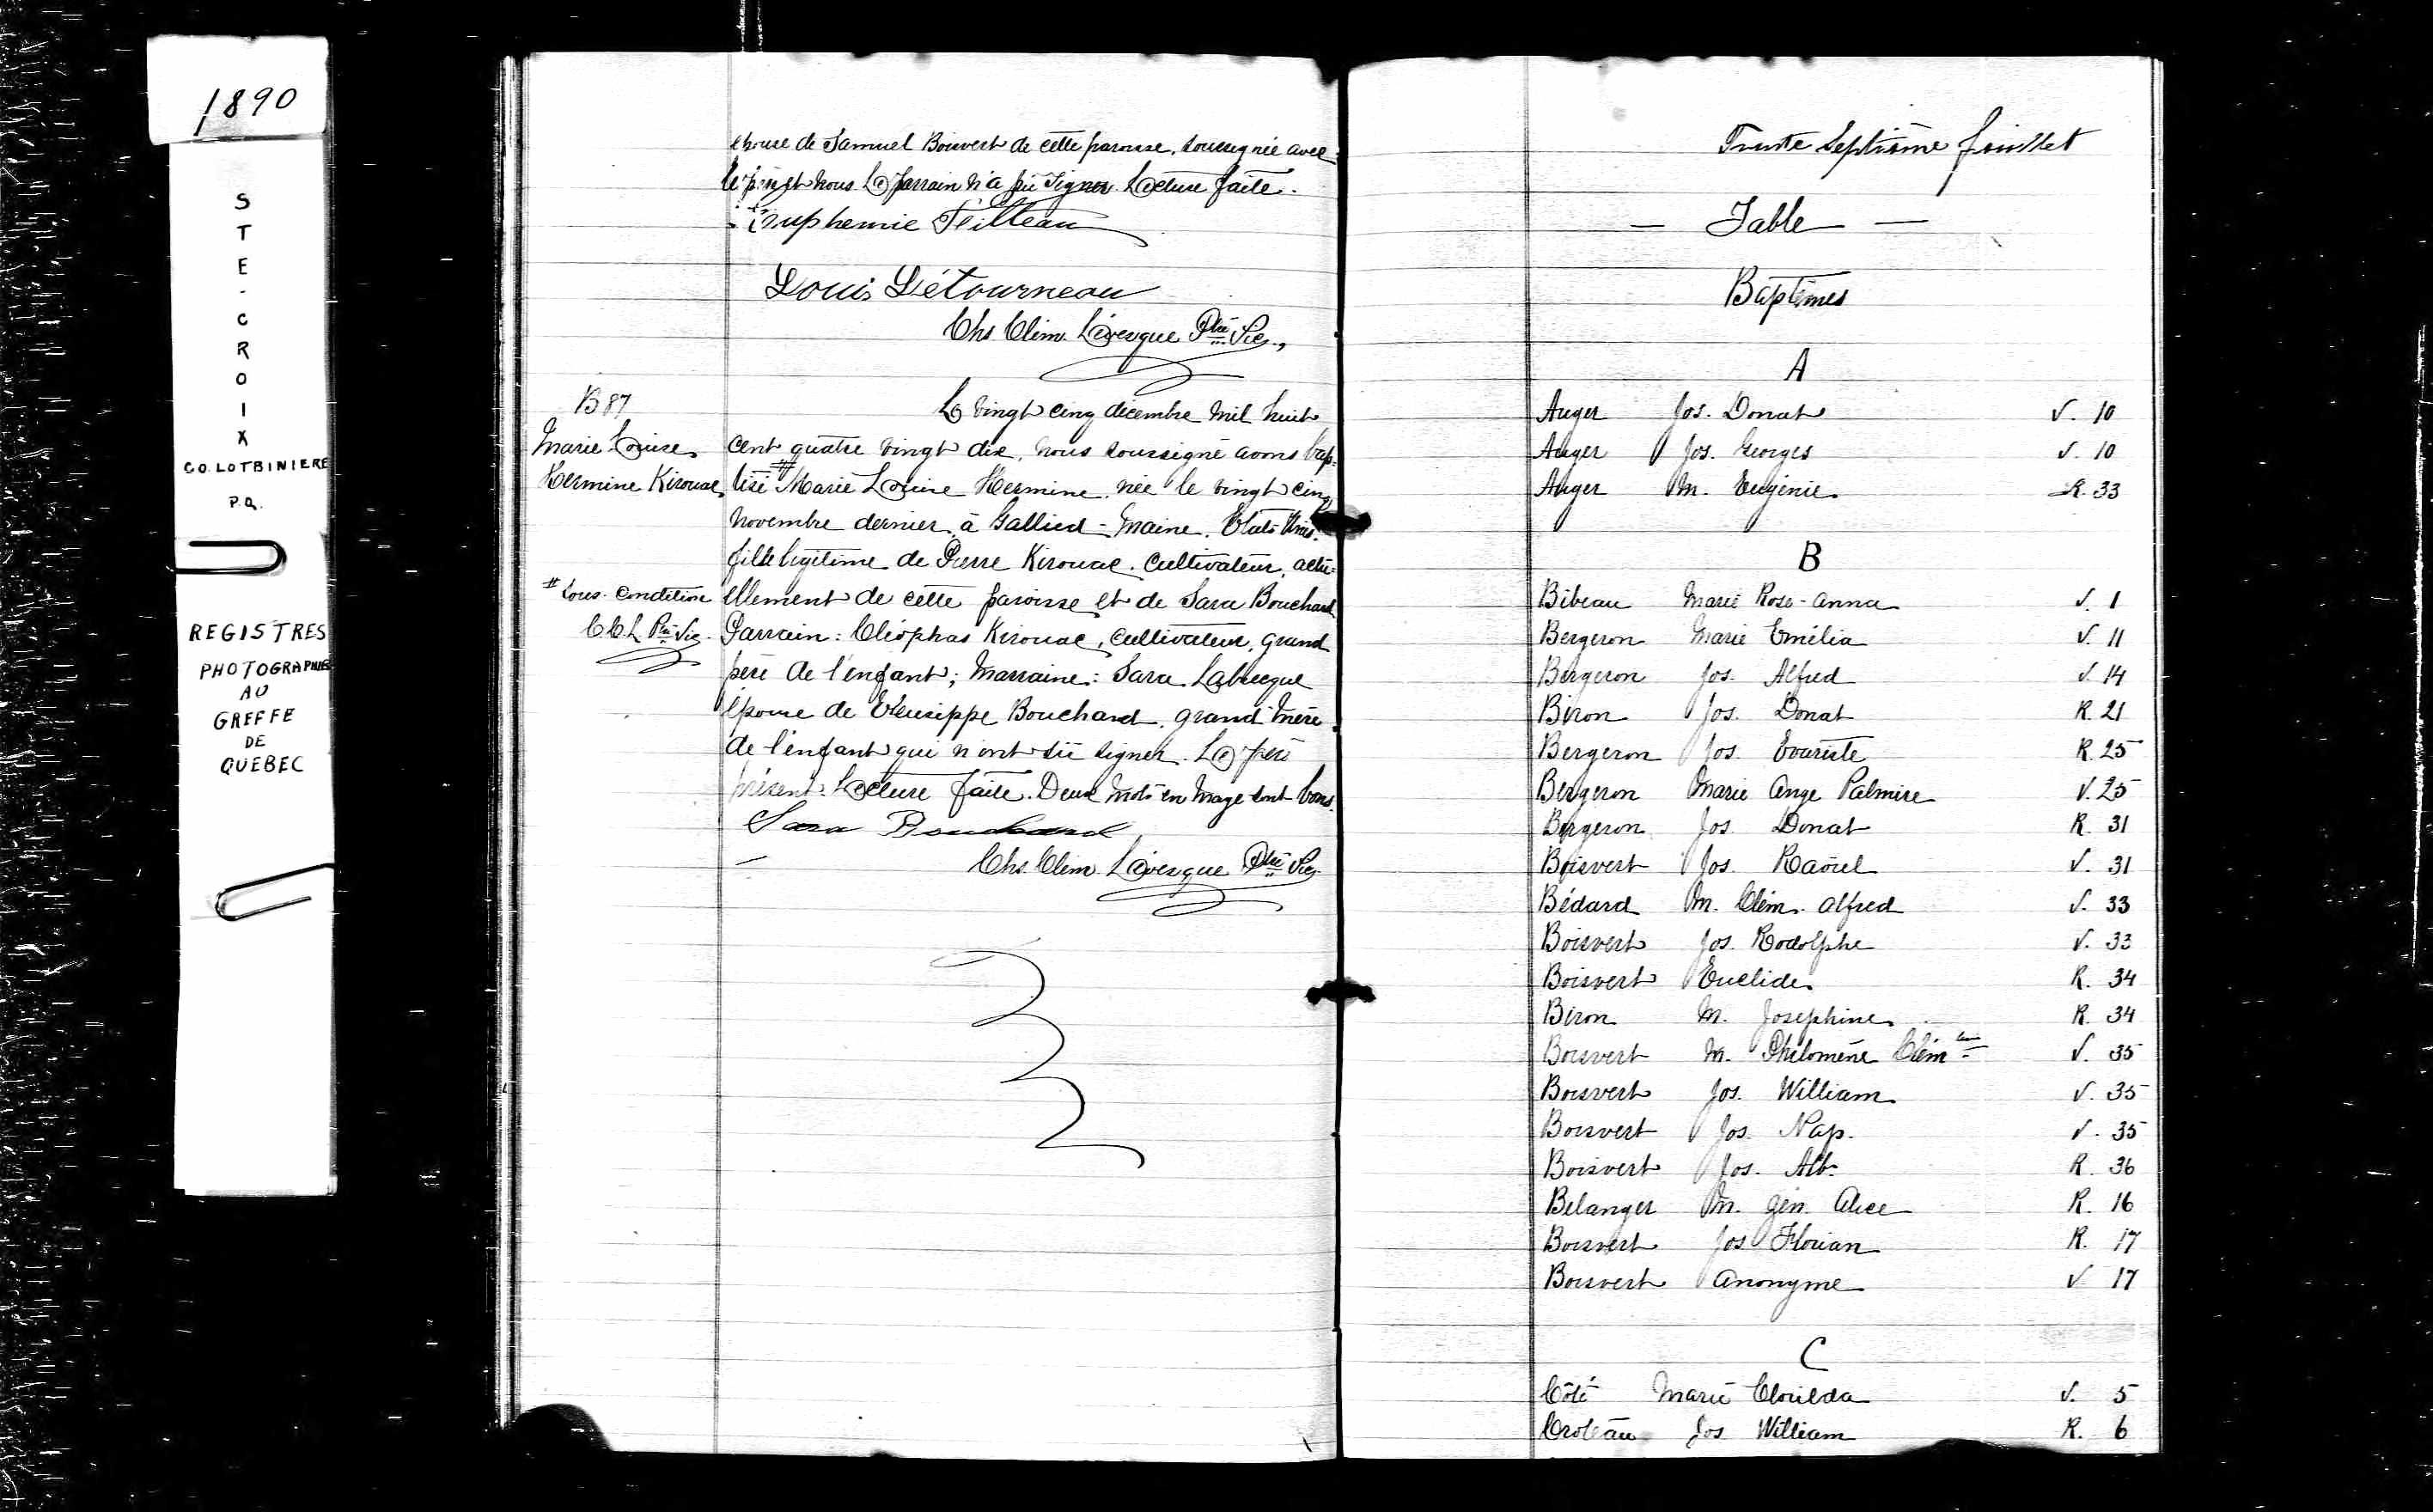 1890
STE-CROIX
CO. LOTBINIERE
P.Q.
REGISTRES
PHOTOGRAPHIÉS
AU
GREFFE
DE
QUEBEC
épouse de Samuel Boisvert de cette paroisse, soussignée avec
le père et nous. Le parrain n'a pu signer. Lecture faite.
Euphemie Filteau
Louis Létourneau
Chs. Clém. Lévesque Ptre Vic.,
B 87
Marie Louise
Hermine Kirouac
# Sous condition
C.C.L. Ptre Vic.
Le vingt cinq décembre mil huit
cent quatre vingt dix, nous soussigné avons bap-
tisé # Marie Louise Hermine, née le vingt cinq
novembre dernier à Maine. Etats Unis.
fille légitime de Pierre Kirouac, cultivateur, actu-
ellement de cette paroisse et de Sara Bouchard
Parrain: Cléophas Kirouac, cultivateur, grand
père de l'enfant; Marraine: Sara Labrecque
épouse de Eleusippe Bouchard, grand'mère
de l'enfant qui n'ont su signer. Le père
présent. Lecture faite. Deux mots en marge sont bons.
Sara Bouchard
Chs. Clém. Lévesque Ptre Vic.
Trente Septième feuillet
— Table —
Baptêmes
A
Auger Jos. Donat V. 10
Auger Jos. Georges V. 10
Auger M. Eugénie R. 33
B
Bibeau Marie Rose-Anna V. 1
Bergeron Marie Emélia V. 11
Bergeron Jos. Alfred V. 14
Biron Jos. Donat R. 21
Bergeron Jos. Evariste R. 25
Bergeron Marie Ange Palmire V. 25
Bergeron Jos. Donat R. 31
Boisvert Jos. Raoul V. 31
Bédard M. Clém. Alfred V. 33
Boisvert Jos. Rodolphe V. 33
Boisvert Euclide R. 34
Biron M. Josephine R. 34
Boisvert M. Philomène Clém V. 35
Boisvert Jos. William V. 35
Boisvert Jos. Nap. V. 35
Boisvert Jos. Alb. R. 36
Belanger M. Gén. Alice R. 16
Boisvert Jos Florian R. 17
Boisvert Anonyme V 17
C
Côté Marie Clorilda V. 5
Croteau Jos William R. 6